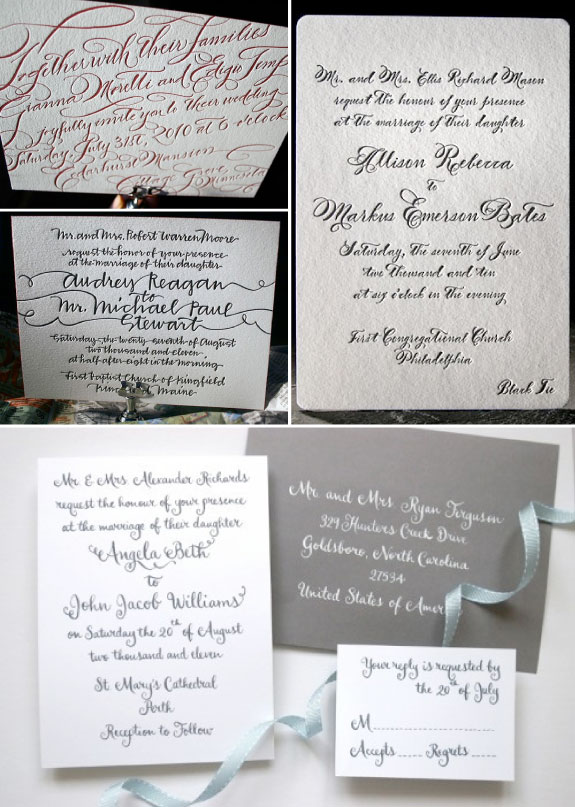 Together with their families
Gianna Morelli and Edigio Temp
joyfully invite you to their wedding
Saturday, July 31st, 2010 at 6 o'clock
Cedarhurst Mansion
Cottage Grove, Minnesota
Mr. and Mrs. Robert Warren Moore
request the honor of your presence
at the marriage of their daughter
Audrey Reagan
to
Mr. Michael Paul
Stewart
Saturday the twenty-seventh of August
two thousand and eleven
at half after eight in the morning
First Baptist Church of Kingfield
Maine
Mr. and Mrs. Ellis Richard Mason
request the honour of your presence
at the marriage of their daughter
Allison Rebecca
to
Markus Emerson Bates
Saturday, the seventh of June
two thousand and ten
at six o'clock in the evening
First Congregational Church
Philadelphia
Black Tie
Mr. & Mrs Alexander Richards
request the honour of your presence
at the marriage of their daughter
Angela Beth
to
John Jacob Williams
on Saturday the 20th of August
two thousand and eleven
St. Mary's Cathedral
Perth
Reception to Follow
Mr. and Mrs Ryan Ferguson
329 Hunters Creek Drive
Goldsboro, North Carolina
27534
United States of Amer
Your reply is requested by
the 20th of July
M
Accepts Regrets